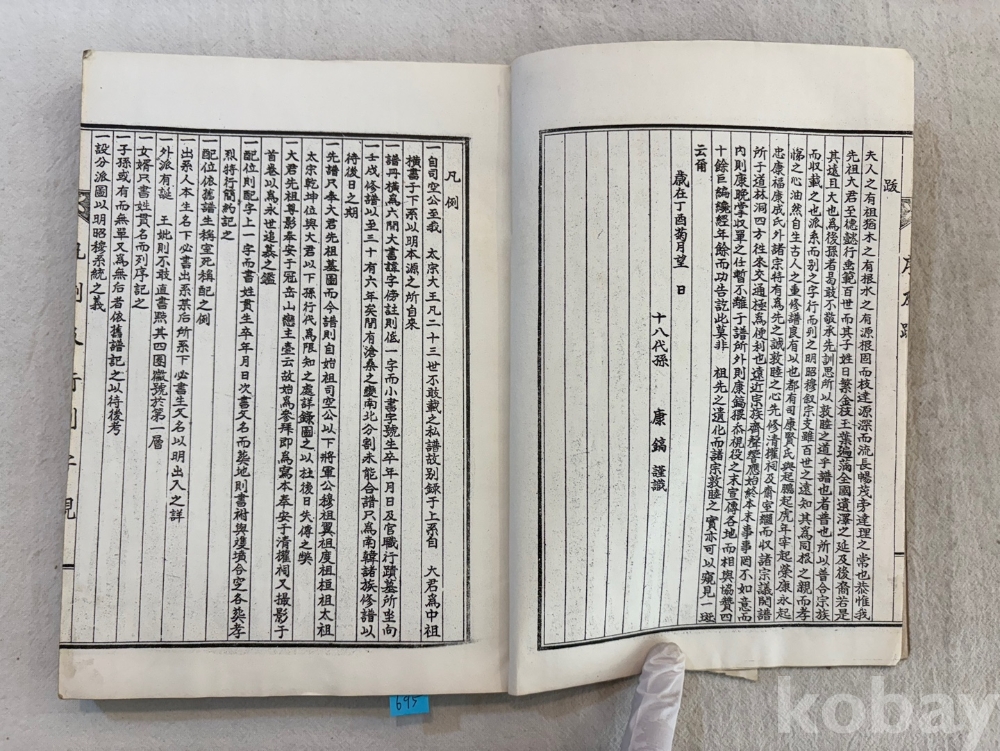 跋
夫人之有祖猶木之有根水之有源根固而枝達源深而流長暢茂亨達理之常也恭惟我
先祖大君至德懿行垂範百世而其子姓日繁金枝玉葉遍滿全國遺澤之延及後裔若是
其遠且大也為後孫者曷敢不敬承先訓思所以敦睦之道乎譜也者普也所以普合宗族
而收載之也派系而別之字行而列之明昭穆叙宗支雖百世之遠知其為同根之親而孝
悌之心油然自生古人之重修譜良有以也都有司康賢氏與起鵬起虎年宰起榮康永起
忠康福康成氏外諸宗特有為先之誠敦睦之心先修清權祠及齋室繼而收諸宗議開譜
所于道林洞四方往來交通極為便利也遠近宗族齊聲響應始終本末事事罔不如意而
內則康晩掌收單之任暫不離于譜所外則康鎬猥忝視役之末宣傳各地而相與協贊四
十餘巨編纔經年餘而功告訖此莫非 祖先之遺化而諸宗敦睦之實亦可以窺見一斑
云爾
歲在丁酉菊月望 日
十八代孫 康 鎬 謹識
凡例
一自司空公至我 太宗大王凡二十三世不敢載之私譜故别錄于上系自 大君為中祖
橫書于下系以明本源之所自來
一譜冊橫為六間大書諱字傍註則低一字而小書字號生卒年月日及官職行蹟墓所坐向
一壬戌修譜以至三十有六年矣間有滄桑之變南北分割未能合譜只為南韓諸族修譜以
待後日之期
一先譜只奉大君先祖墓圖而今譜則自始祖司空公以下將軍公穆祖翼祖度祖桓祖太祖
太宗乾坤位與大君以下孫行代為限知之處詳錄圖之以杜後日失傳之獘
一大君先祖尊影奉安于冠岳山戀主臺云故始為參拜即為寫本奉安于清權祠又撮影于
首卷以為永世追慕之鑑
一配位則配字上一字而書姓貫生卒年月日次書父名而葬地則書祔與雙墳合窆各葬孝
烈特行簡約記之
一配位依舊譜生稱室死稱配之例
一出系人本生名下必書出系某后所系下必書生父名以明出入之詳
一外派有誕 王妣則不敢直書黙其四圍徽號於第一層
一女婿只書姓貫名而列序記之
一子孫或有而無單又為無后者依舊譜記之以待後考
一設分派圖以明昭穆系統之義
695
kobay